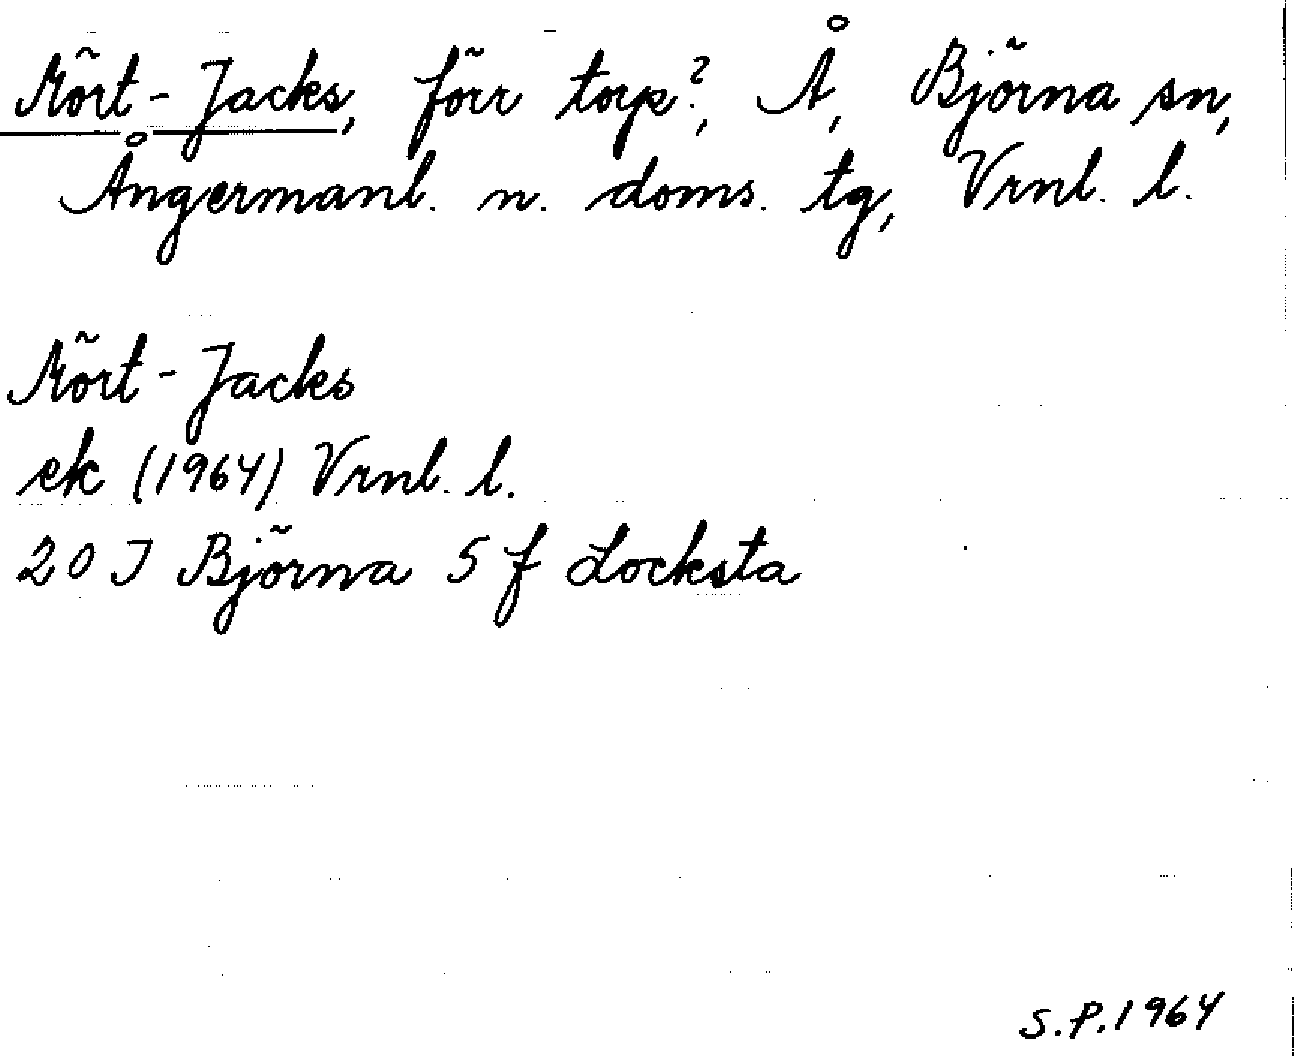 Mört-Jacks, förr torp?, Å, Björna sn,
Ångermanl. n. doms. tg, Vrnl. l.
Mört-Jacks
ek (1964) Vrnl. l.
20 J Björna 5 f Locksta
S.P. 1964